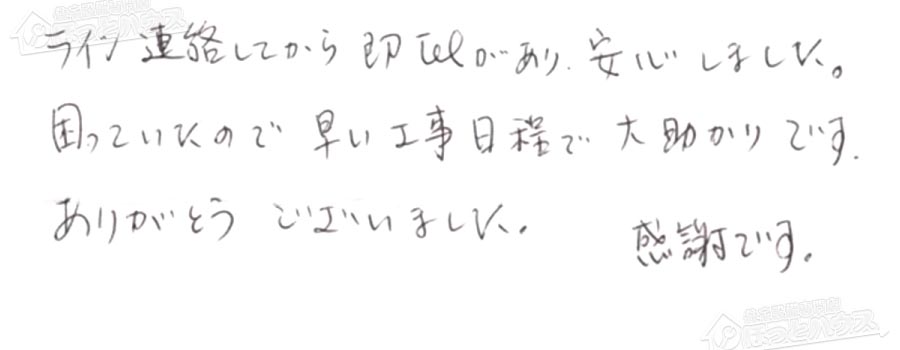 ライン連絡してから即Telがあり、安心しました。
困っていたので早い工事日程で大助かりです.
ありがとうございました。
感謝です。
ほっとハウス
ほっとハウス